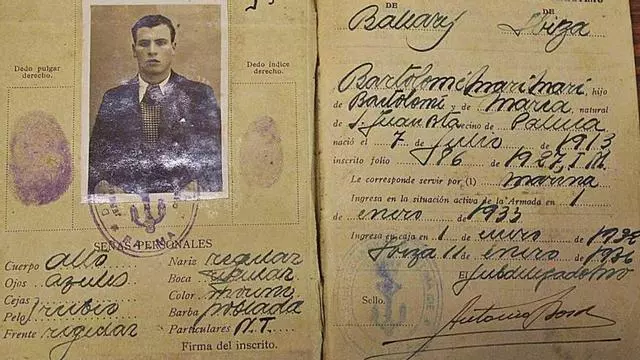 DE
DE
Baleares Ibiza
Dedo pulgar
derecho.
Dedo índice
derecho.
SEÑAS PERSONALES
Cuerpo alto
Ojos azules
Cejas
Pelo rubio
Frente regular
Nariz regular
Boca regular
Color moreno
Barba poblada
Particulares N.T.
Firma del inscrito.
Bartolomé Marí Marí hijo
de Bartolomé y de María natural
de S. Juan Bta vecino de
nació el 7 de Julio de 1913
inscrito folio 86 de 1927 I.M.
Le corresponde servir por (1) marina
Ingresa en la situación activa de la Armada en 1
de enero de 1933
Ingresa en caja en 1 de enero de
Ibiza 11 de enero de 1936
El Subdelegado
Sello.
Antonio